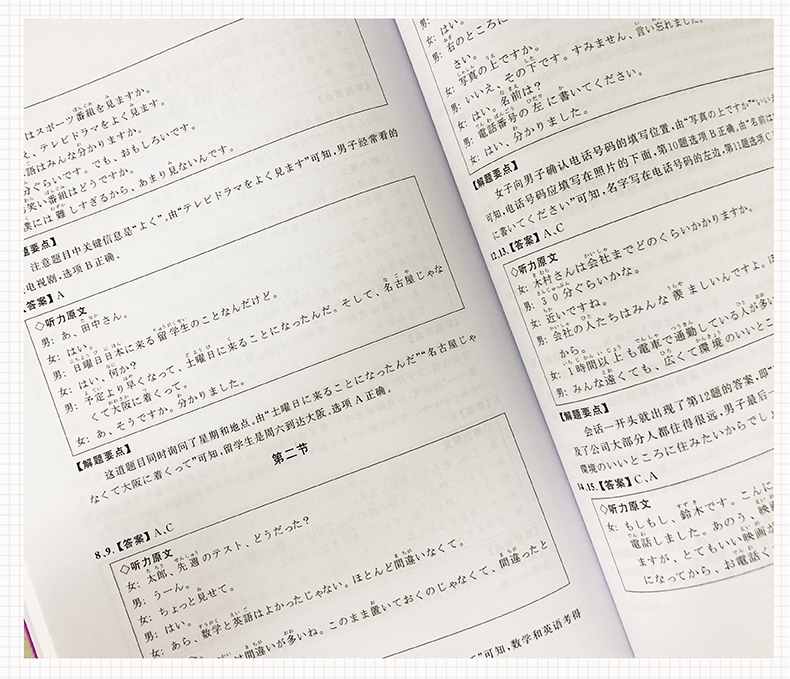 はスポーツ番組を見ますか。
え、テレビドラマをよく見ます。
語はみんな分かりますか。
分ぐらいです。でも、おもしろいです。
笑い番組はどうですか。
僕には難しすぎるから、あまり見ないんです。
题要点】
注意题目中关键信息是“よく”,由“テレビドラマをよく見ます”可知,男子经常看的
电视剧,选项B正确。
答案】A
◇听力原文
男:あ、田中さん。
女:はい。
男:日曜日日本に来る留学生のことなんだけど。
女:はい、何か?
男:予定より早くなって、土曜日に来ることになったんだ。そして、名古屋じゃな
くて大阪に着くって。
女:あ、そうですか。分かりました。
【解题要点】
这道题目同时询问了星期和地点,由“土曜日に来ることになったんだ”“名古屋じゃ
なくて大阪に着くって”可知,留学生是周六到达大阪,选项A正确。
第二节
8、9.【答案】A、C
◇听力原文
女:太郎、先週のテスト、どうだった?
男:うーん。
女:ちょっと見せて。
男:はい。
女:あら、数学と英語はよかったじゃない。ほとんど間違いなくて。
は間違いが多いね。このまま置いておくのじゃなくて、間違ったと
”可知,数学和英语考得
男:
女:はい。
男:右のところに
さい。
女:写真の上ですか。
男:いいえ、その下です。すみません、言い忘れました。
女:はい。名前は?
男:電話番号の左に書いてください。
女:はい、分かりました。
【解题要点】
女子向男子确认电话号码的填写位置,由“写真の上ですか”“いい
可知,电话号码应填写在照片的下面,第10题选项B正确,由“名前は
に書いてください”可知,名字写在电话号码的左边,第11题选项C
12、13.【答案】A、C
◇听力原文
女:木村さんは会社までどのくらいかかりますか。
男:30分ぐらいかな。
女:近いですね。
男:会社の人たちはみんな羨ましいんですよ。ほ
から。
女:1時間以上も電車で通勤している人が多い
男:みんな遠くても、広くて環境のいいとこ
【解题要点】
会话一开头就出现了第12题的答案,即“
及了公司大部分人都住得很远,男子最后一
環境のいいところに住みたいからでしょ
14、15.【答案】C、A
◇听力原文
女:もしもし、鈴木です。こんに
電話しました。あのう、映
ますが、とてもいい映画が
になってから、お電話く